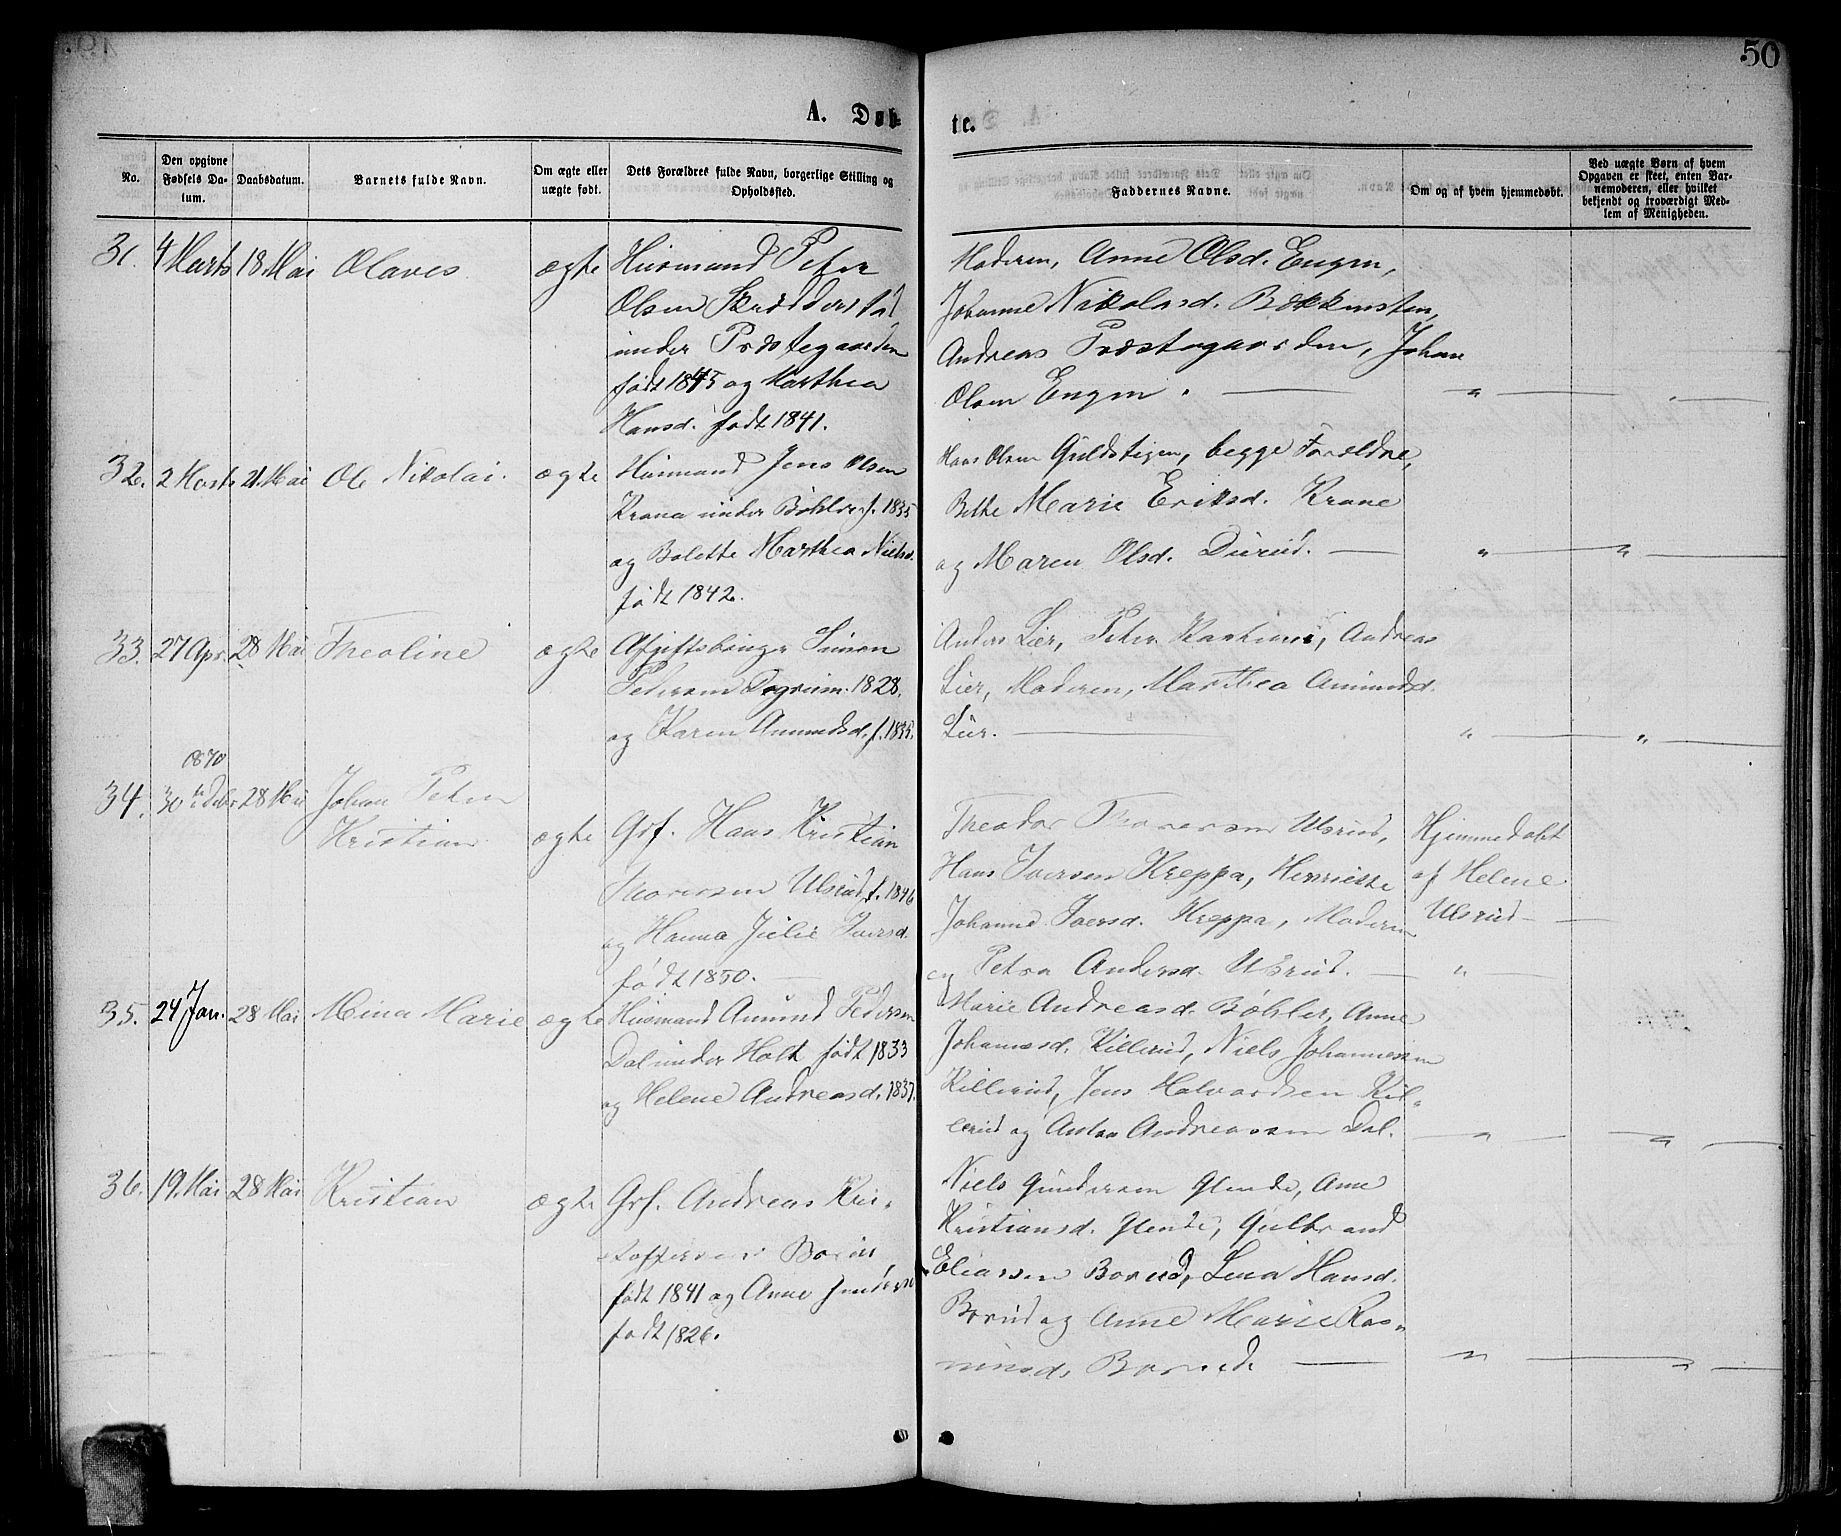 50
A. Døb- te.
No.
Den opgivne Fødsels Da-tum.
Daabsdatum.
Barnets fulde Navn.
Om ægte eller uægte født.
Dets Forældres fulde Navn, borgerlige Stilling og Opholdssted.
Faddernes Navne.
Om og af hvem hjemmedøbt.
Ved uægte Børn af hvem Opgaven er skeet, enten Bar-nemoderen, eller hvilket bekjendt og troværdigt Med-lem af Menigheden.
31. 4 Marts 18 Mai Olaves ægte
Husmand Peter
Olsen Skrædderstad
under Præstegaarden
født 1845 og Marthea
Hansd. født 1841.
Moderen, Anne Olsd. Engen,
Johanne Nikolasd. Bækkensten,
Andreas Præstegaarden, Johan
Olsen Engen. — " — "
32. 2 Marts 21 Mai Ole Nikolai. ægte
Husmand Jens Olsen
Krana under Bøhler f. 1835
og Bolette Marthea Nielsd.
født 1842.
Hans Olsen Guldstigen, begge Forældre,
Bethe Marie Eriksd. Krane
og Maren Olsd. Durud. — " — " —
33. 27 Apr. 28 Mai Theoline ægte
Afgiftsbruger Simen
Pedersen 1828.
og Karen Amundsd. f. 1835.
Anders Lier, Peter Andreas
Lier, Moderen, Marthea Amundsd.
Lier. — " — " —
1870
34. 30te Debr 28 Mai Johan Peter
Kristian ægte
Grf. Hans Kristian
Thoresen Ulsrud f. 1846
og Hanna Julie Iversd.
født 1850. —
Theodor Thoresen Ulsrud,
Hans Iversen Kreppa, Henriette
Johanne Iversd. Kreppa, Moderen
og Petra Andersd. Ulsrud. — " —
Hjemmedøbt
af Helene
Ulsrud —
35. 24 Jan. 28 Mai Mina Marie ægte
Husmand Amund Pedersen
Dal under Holt født 1833
og Helene Andreasd. 1837.
Marie Andreasd. Bøhler, Anne
Johannesd. Killerud, Niels Johannesen
Killerud, Jens Halvardsen Kil-
lerud og Anton Andreassen Dal. — " — " —
36. 19. Mai 28 Mai Kristian ægte
Grf. Andreas Kri-
stoffersen Borud
født 1841 og Anne Gundersd
født 1826.
Niels Gundersen Glende, Anne
Kristiansd. Glende, Gulbrand
Eliassen Borud, Lena Hansd.
Borud og Anne Marie Ras-
musd. Borud. — " — " —